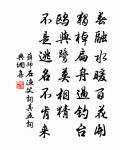 春融水暖百花開
獨棹扁舟過釣台
鷗與鷺莫相猜
不是逃名不肯來
薛師石漁父詞其五詞
典網